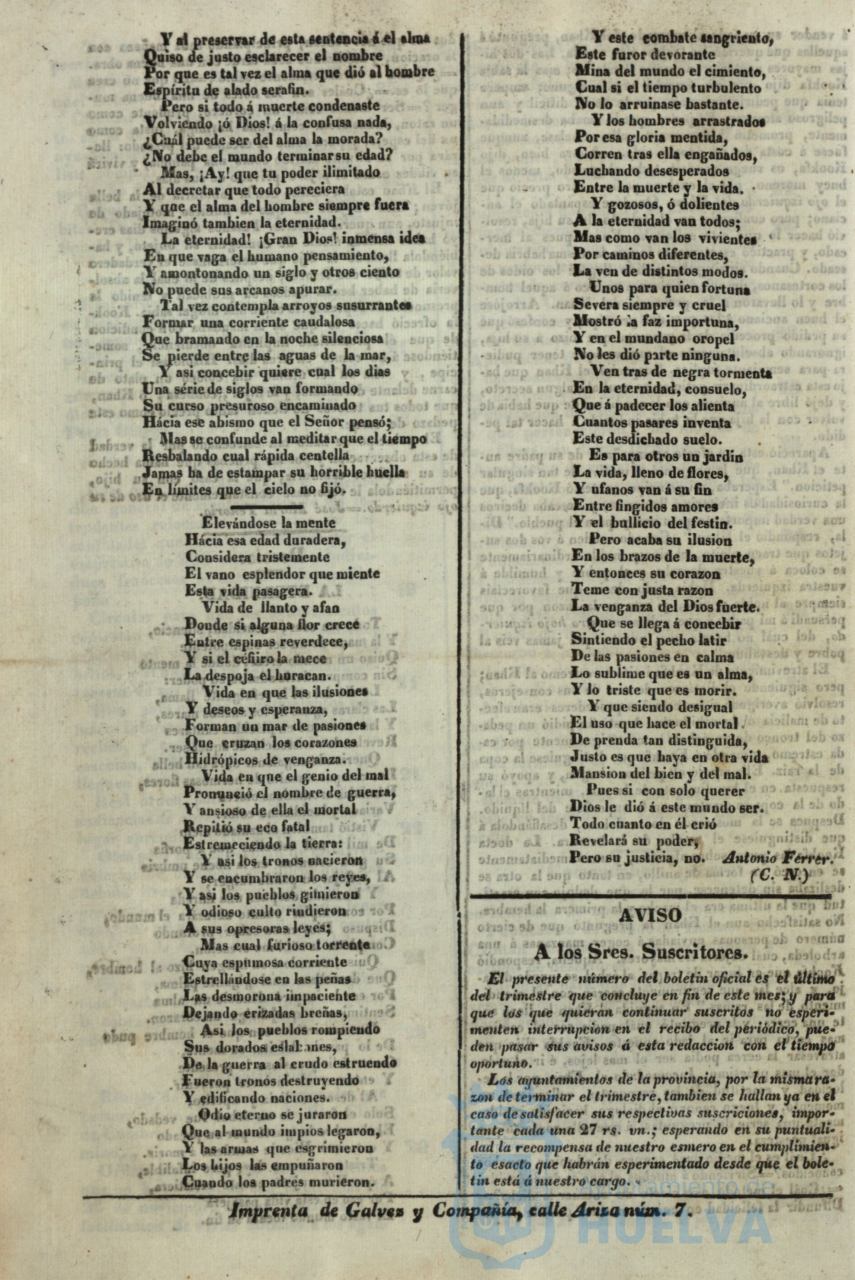 Y al preservar de esta sentencia á el alma
Quiso de justo esclarecer el nombre
Por que es tal vez el alma que dió al hombre
Espíritu de alado serafin.
Pero si todo á muerte condenaste
Volviendo ¡ó Dios! á la confusa nada,
¿Cuál puede ser del alma la morada?
¿No debe el mundo terminar su edad?
Mas, ¡Ay! que tu poder ilimitado
Al decretar que todo pereciera
Y que el alma del hombre siempre fuera
Imaginó tambien la eternidad.
La eternidad! ¡Gran Dios! inmensa idea
En que vaga el humano pensamiento,
Y amontonando un siglo y otros ciento
No puede sus arcanos apurar.
Tal vez contempla arroyos susurrantes
Formar una corriente caudalosa
Que bramando en la noche silenciosa
Se pierde entre las aguas de la mar,
Y asi concebir quiere cual los dias
Una série de siglos van formando
Su curso presuroso encaminado
Hácia ese abismo que el Señor pensó;
Mas se confunde al meditar que el tiempo
Resbalando cual rápida centella
Jamas ha de estampar su horrible huella
En límites que el cielo no fijó.
Elevándose la mente
Hácia esa edad duradera,
Considera tristemente
El vano esplendor que miente
Esta vida pasagera.
Vida de llanto y afan
Donde si alguna flor crece
Entre espinas reverdece,
Y si el céfiiro la mece
La despoja el huracan.
Vida en que las ilusiones
Y deseos y esperanza,
Forman un mar de pasiones
Que cruzan los corazones
Hidrópicos de venganza.
Vida en que el genio del mal
Pronunció el nombre de guerra,
Y ansioso de ella el mortal
Repitió su eco fatal
Estremeciendo la tierra:
Y asi los tronos nacieron
Y se encumbraron los reyes,
Y asi los pueblos gimieron
Y odioso culto rindieron
A sus opresoras leyes;
Mas cual furioso torrente
Cuya espumosa corriente
Estrellándose en las peñas
Las desmorona impaciente
Dejando erizadas breñas,
Asi los pueblos rompiendo
Sus dorados eslabones,
De la guerra al crudo estruendo
Fueron tronos destruyendo
Y edificando naciones.
Odio eterno se juraron
Que al mundo impios legaron,
Y las armas que esgrimieron
Los hijos las empuñaron
Cuando los padres murieron.
Y este combate sangriento,
Este furor devorante
Mina del mundo el cimiento,
Cual si el tiempo turbulento
No lo arruinase bastante.
Y los hombres arrastrados
Por esa gloria mentida,
Corren tras ella engañados,
Luchando desesperados
Entre la muerte y la vida.
Y gozosos, ó dolientes
A la eternidad van todos;
Mas como van los vivientes
Por caminos diferentes,
La ven de distintos modos.
Unos para quien fortuna
Severa siempre y cruel
Mostró la faz importuna,
Y en el mundano oropel
No les dió parte ninguna.
Ven tras de negra tormenta
En la eternidad, consuelo,
Que á padecer los alienta
Cuantos pasares inventa
Este desdichado suelo.
Es para otros un jardin
La vida, lleno de flores,
Y ufanos van á su fin
Entre fingidos amores
Y el bullicio del festin.
Pero acaba su ilusion
En los brazos de la muerte,
Y entonces su corazon
Teme con justa razon
La venganza del Dios fuerte.
Que se llega á concebir
Sintiendo el pecho latir
De las pasiones en calma
Lo sublime que es un alma,
Y lo triste que es morir.
Y que siendo desigual
El uso que hace el mortal
De prenda tan distinguida,
Justo es que haya en otra vida
Mansion del bien y del mal.
Pues si con solo querer
Dios le dió á este mundo ser.
Todo cuanto en él crió
Revelará su poder,
Pero su justicia, no. Antonio Ferrer.
(C. N.)
AVISO
A los Sres. Suscritores.
El presente número del boletin oficial es el último
del trimestre que concluye en fin de este mes; y para
que los que quieran continuar suscritos no esperi-
menten interrupcion en el recibo del periódico, pue-
den pasar sus avisos á esta redaccion con el tiempo
oportuno.
Los ayuntamientos de la provincia, por la misma ra-
zon de terminar el trimestre, tambien se hallan ya en el
caso de satisfacer sus respectivas suscriciones, impor-
tante cada una 27 rs. vn.; esperando en su puntuali-
dad la recompensa de nuestro esmero en el cumplimien-
to esacto que habrán esperimentado desde que el bole-
tin está á nuestro cargo.
Imprenta de Galvez y Compañía, calle Ariza núm. 7.
HUELVA